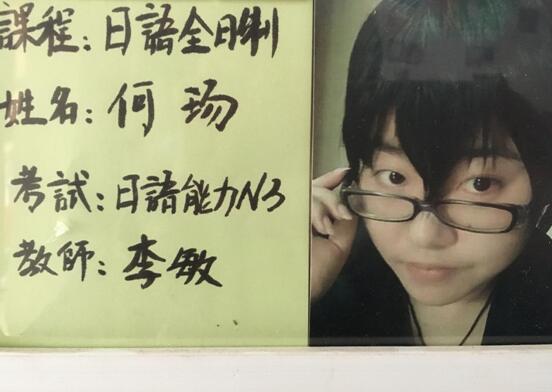 課程：日語全日制
姓名：何玚
考試：日語能力N3
教師：李敏